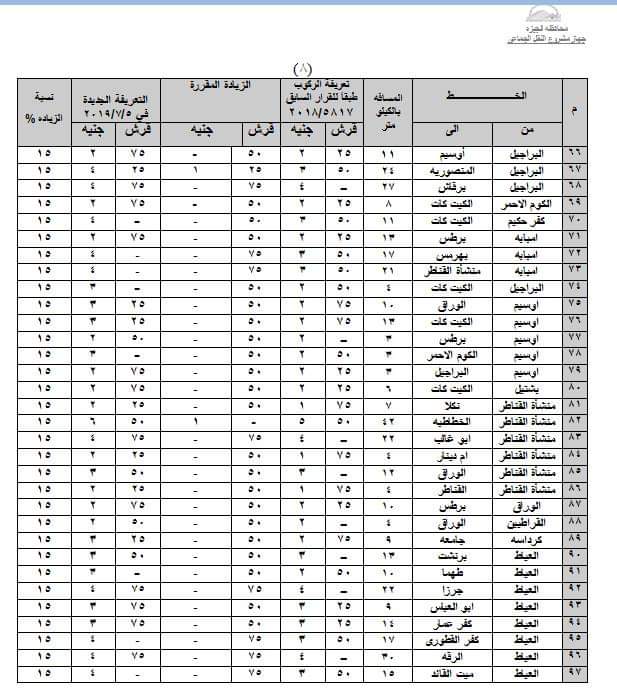 محافظة الجيزة
جهاز مشروع النقل الجماعى
(٨)
م الخـــط المسافه بالكيلو متر تعريفة الركوب طبقا للقرار السابق ٢٠١٨/٥٨١٧ الزيادة المقررة التعريفة الجديدة في ٢٠١٩/٧/٥ نسبة الزياده %
من الى قرش جنيه قرش جنيه قرش جنيه
٦٦ البراجيل أوسيم ١١ ٢٥ ٢ ٥٠ - ٧٥ ٢ ١٥
٦٧ البراجيل المنصوريه ٢٤ ٥٠ ٣ ٢٥ ١ ٢٥ ٤ ١٥
٦٨ البراجيل برقاش ٢٧ – ٤ ٧٥ - ٧٥ ٤ ١٥
٦٩ الكوم الاحمر الكيت كات ٨ ٢٥ ٢ ٥٠ - ٧٥ ٢ ١٥
٧٠ كفر حكيم الكيت كات ١١ ٥٠ ٣ ٥٠ - – ٤ ١٥
٧١ امبابه برطس ١٣ ٢٥ ٢ ٥٠ - ٧٥ ٢ ١٥
٧٢ امبابه بهرمس ١٧ ٥٠ ٣ ٧٥ - - ٤ ١٥
٧٣ امبابه منشأة القناطر ٢١ ٥٠ ٣ ٧٥ - - ٤ ١٥
٧٤ البراجيل الكيت كات ٤ ٥٠ ٢ ٥٠ - – ٣ ١٥
٧٥ اوسيم الوراق ١٠ ٧٥ ٢ ٥٠ - ٢٥ ٣ ١٥
٧٦ اوسيم الكيت كات ١٣ ٧٥ ٢ ٥٠ - ٢٥ ٣ ١٥
٧٧ اوسيم برطس ٣ – ٢ ٥٠ - ٥٠ ٢ ١٥
٧٨ اوسيم الكوم الاحمر ٣ ٥٠ ٢ ٥٠ - – ٣ ١٥
٧٩ اوسيم البراجيل ٣ ٢٥ ٢ ٥٠ - ٧٥ ٢ ١٥
٨٠ بشتيل الكيت كات ٦ ٢٥ ٢ ٥٠ - ٧٥ ٢ ١٥
٨١ منشأة القناطر نكلا ٧ ٧٥ ١ ٥٠ - ٢٥ ٢ ١٥
٨٢ منشأة القناطر الخطاطبه ٤٢ ٥٠ ٥ - ١ ٥٠ ٦ ١٥
٨٣ منشأة القناطر ابو غالب ٢٢ – ٤ ٧٥ - ٧٥ ٤ ١٥
٨٤ منشأة القناطر ام دينار ٤ ٧٥ ١ ٥٠ - ٢٥ ٢ ١٥
٨٥ منشأة القناطر الوراق ١٢ – ٣ ٥٠ - ٥٠ ٣ ١٥
٨٦ منشأة القناطر القناطر ٤ ٧٥ ١ ٥٠ - ٢٥ ٢ ١٥
٨٧ الوراق برطس ١٠ ٢٥ ٢ ٥٠ - ٧٥ ٢ ١٥
٨٨ القراطيين الوراق ٤ – ٢ ٥٠ - ٥٠ ٢ ١٥
٨٩ كرداسه جامعه ٩ ٧٥ ٢ ٥٠ - ٢٥ ٣ ١٥
٩٠ العياط برنشت ١٣ – ٣ ٥٠ - ٥٠ ٣ ١٥
٩١ العياط طهما ١٠ ٥٠ ٢ ٥٠ - – ٣ ١٥
٩٢ العياط جرزا ٢٢ – ٤ ٧٥ - ٧٥ ٤ ١٥
٩٣ العياط ابو العباس ٩ ٢٥ ٣ ٥٠ - ٧٥ ٣ ١٥
٩٤ العياط كفر عمار ١٤ ٢٥ ٣ ٥٠ - ٧٥ ٣ ١٥
٩٥ العياط كفر القطورى ١٧ ٥٠ ٣ ٧٥ - - ٤ ١٥
٩٦ العياط الرقه ٣٠ – ٤ ٧٥ - ٧٥ ٤ ١٥
٩٧ العياط ميت القائد ١٥ ٥٠ ٣ ٧٥ - – ٤ ١٥